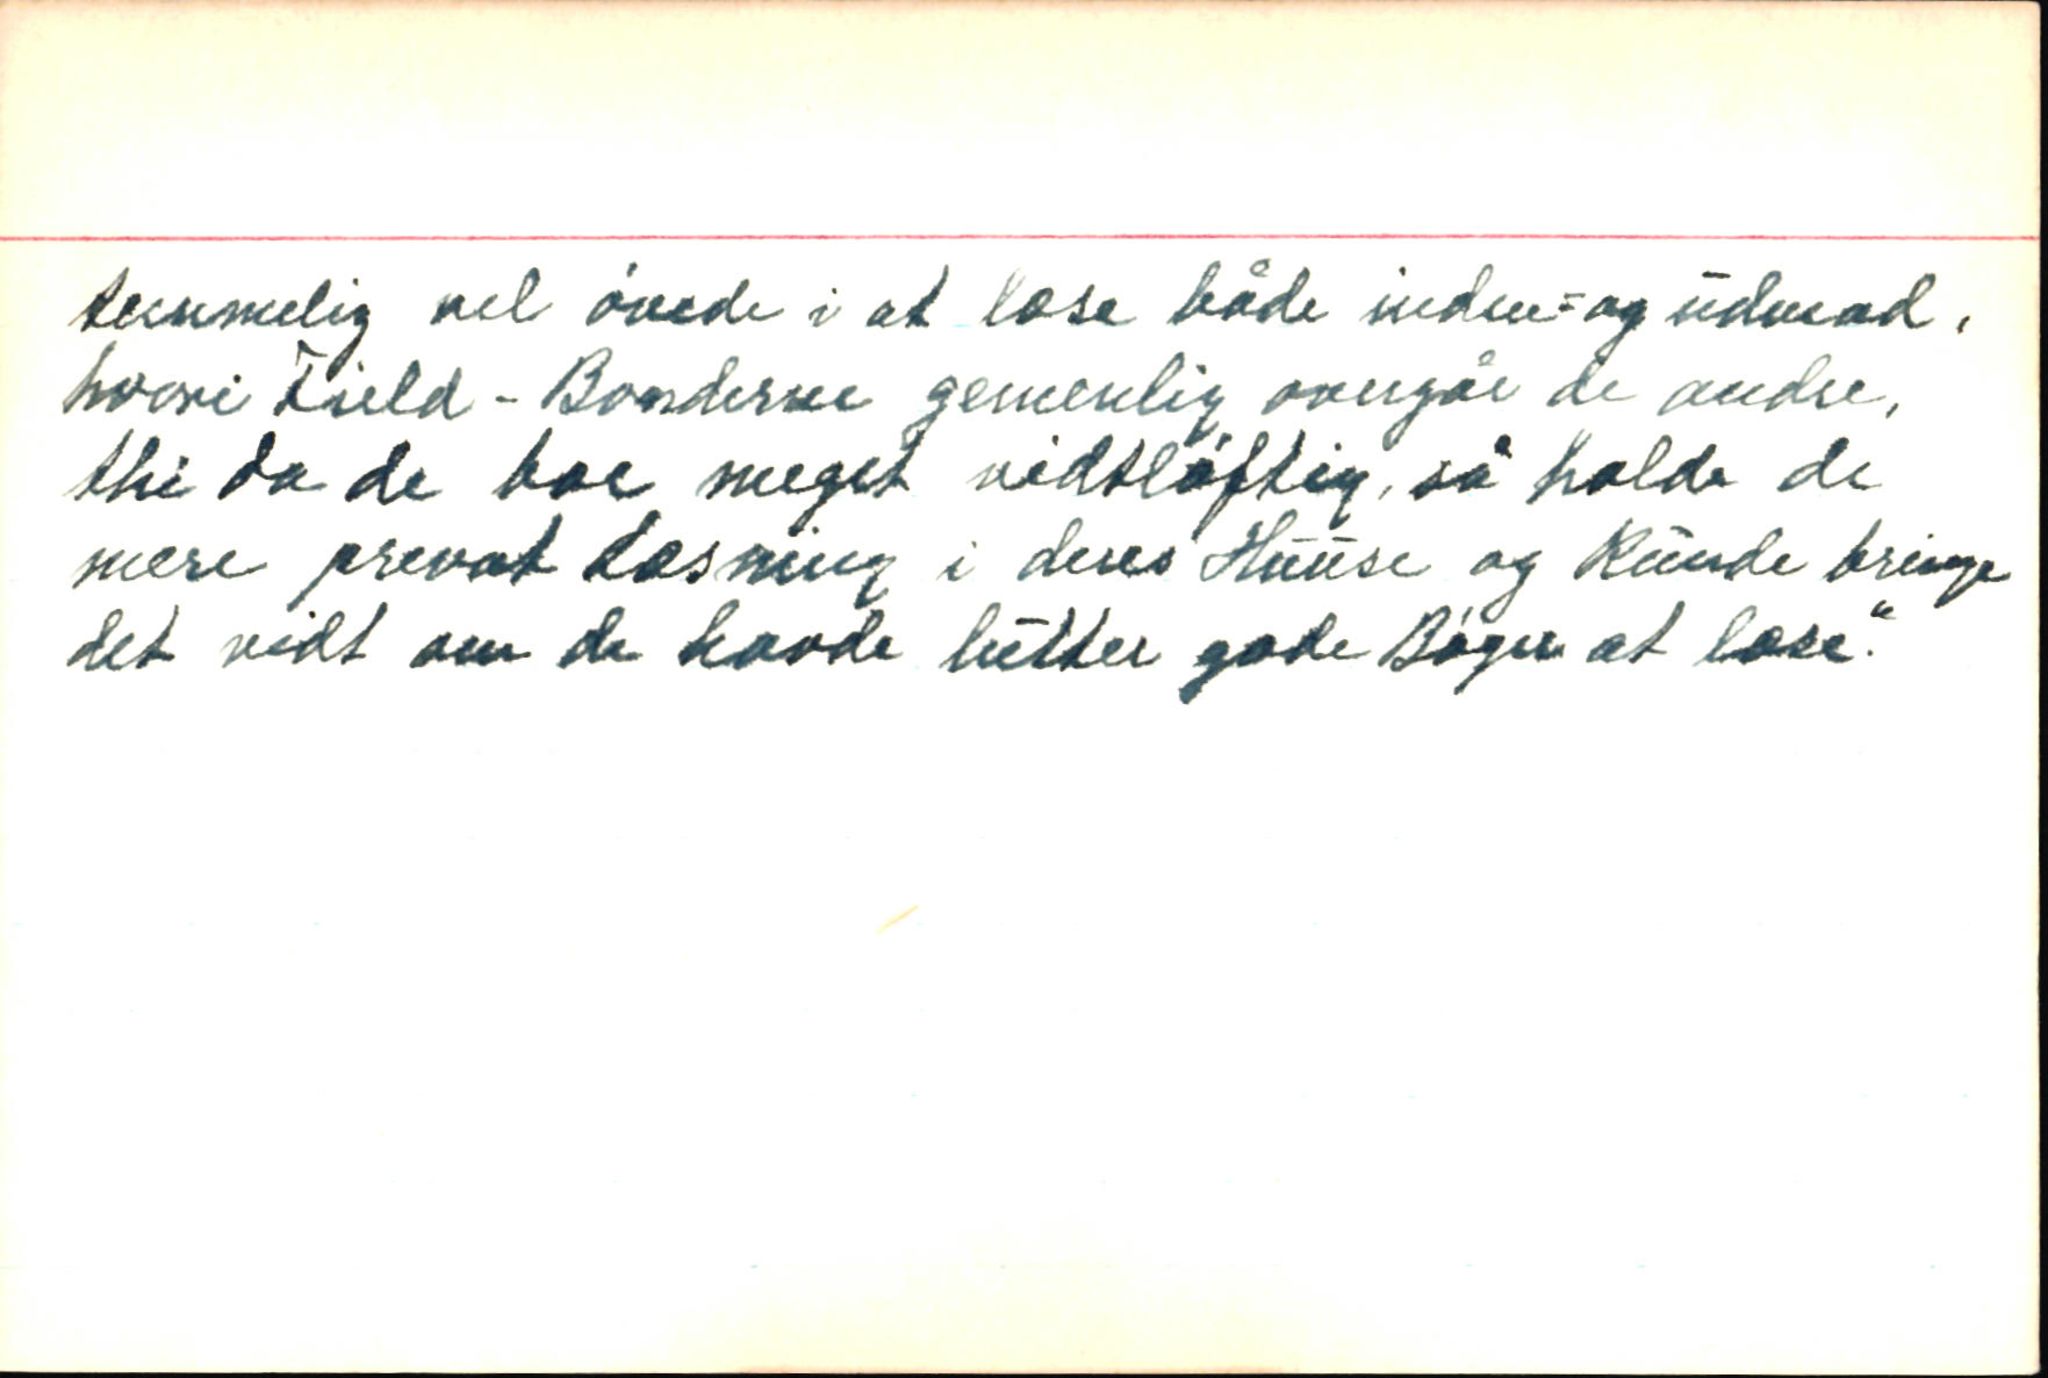 temmelig vel övede i at læse både inden=og udvend,
hvori Field-Bønderne gemenlig overgåe de andre,
thi da de boe meget vidtløftig, så holde de
mere prevat Læsning i deres Huuse og kunde bringe
det vidt om de havde lutter gode Bøger at læse."